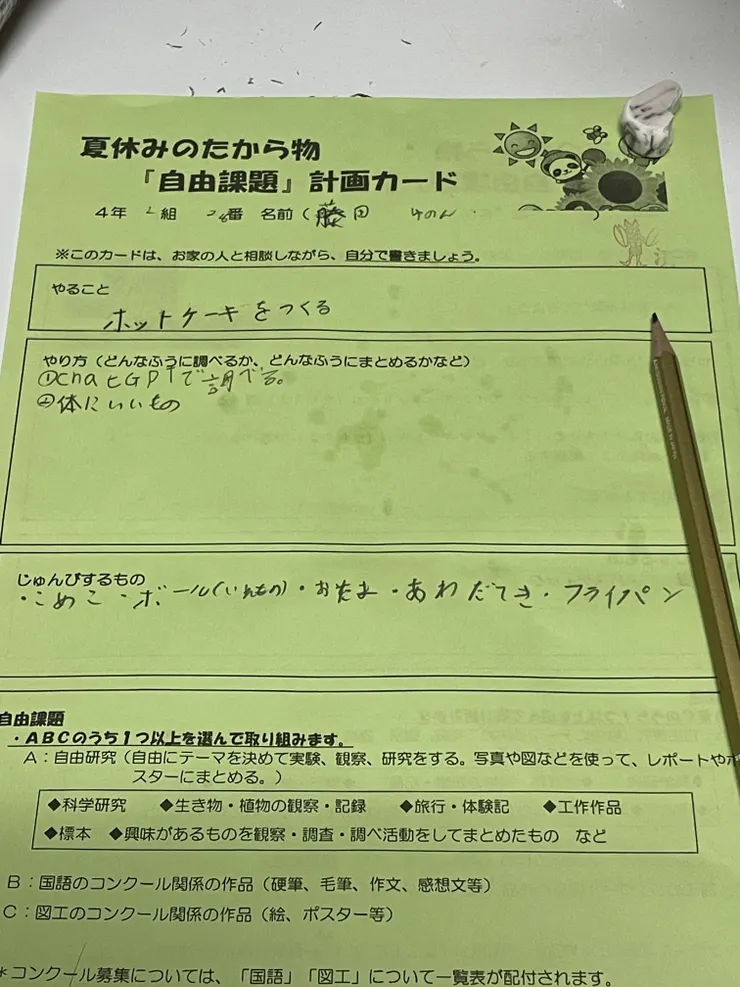 夏休みのたから物
『自由課題』計画カード
4年 2組 番 名前(藤田 ゆのん )
※このカードは、お家の人と相談しながら、自分で書きましょう。
やること
ホットケーキをつくる
やり方(どんなふうに調べるか、どんなふうにまとめるかなど)
①chaヒGPTで調べる。
②体にいいもの
じゅんびするもの
・こめこ ・ボール(いれもの)・おたま・あわだてき・フライパン
自由課題
・ABCのうち1つ以上を選んで取り組みます。
A:自由研究(自由にテーマを決めて実験、観察、研究をする。写真や図などを使って、レポートやポ
スターにまとめる。)
◆科学研究 ◆生き物・植物の観察・記録 ◆旅行・体験記 ◆工作作品
◆標本 ◆興味があるものを観察・調査・調べ活動をしてまとめたもの など
B:国語のコンクール関係の作品(硬筆、毛筆、作文、感想文等)
C:図工のコンクール関係の作品(絵、ポスター等)
*コンクール募集については、「国語」「図工」について一覧表が配付されます。